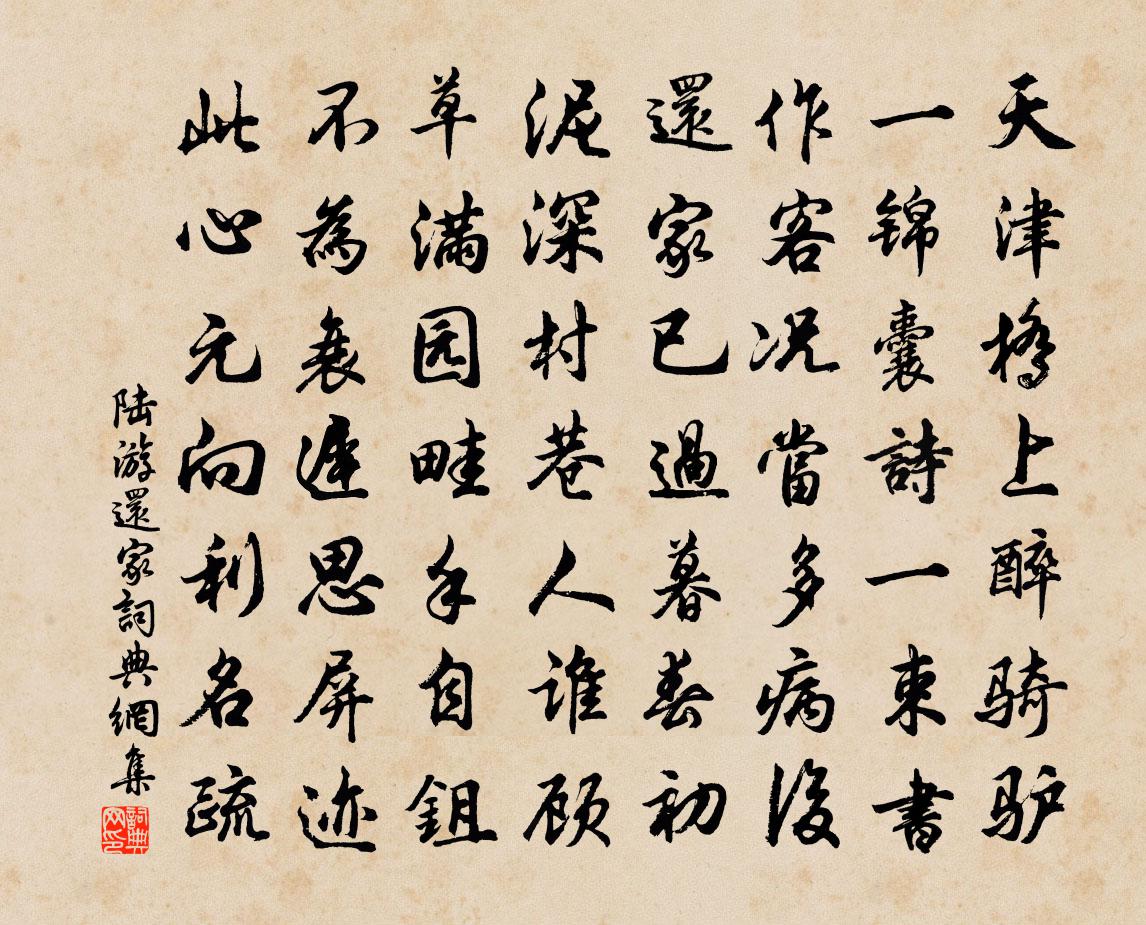 天津橋上醉骑驴
一锦囊詩一束書
作客况當多病後
還家已過暮春初
泥深村巷人谁顾
草满园畦手自鉏
不為衰遲思屏迹
此心元向利名疏
陆游還家詞典網集
詞典网印